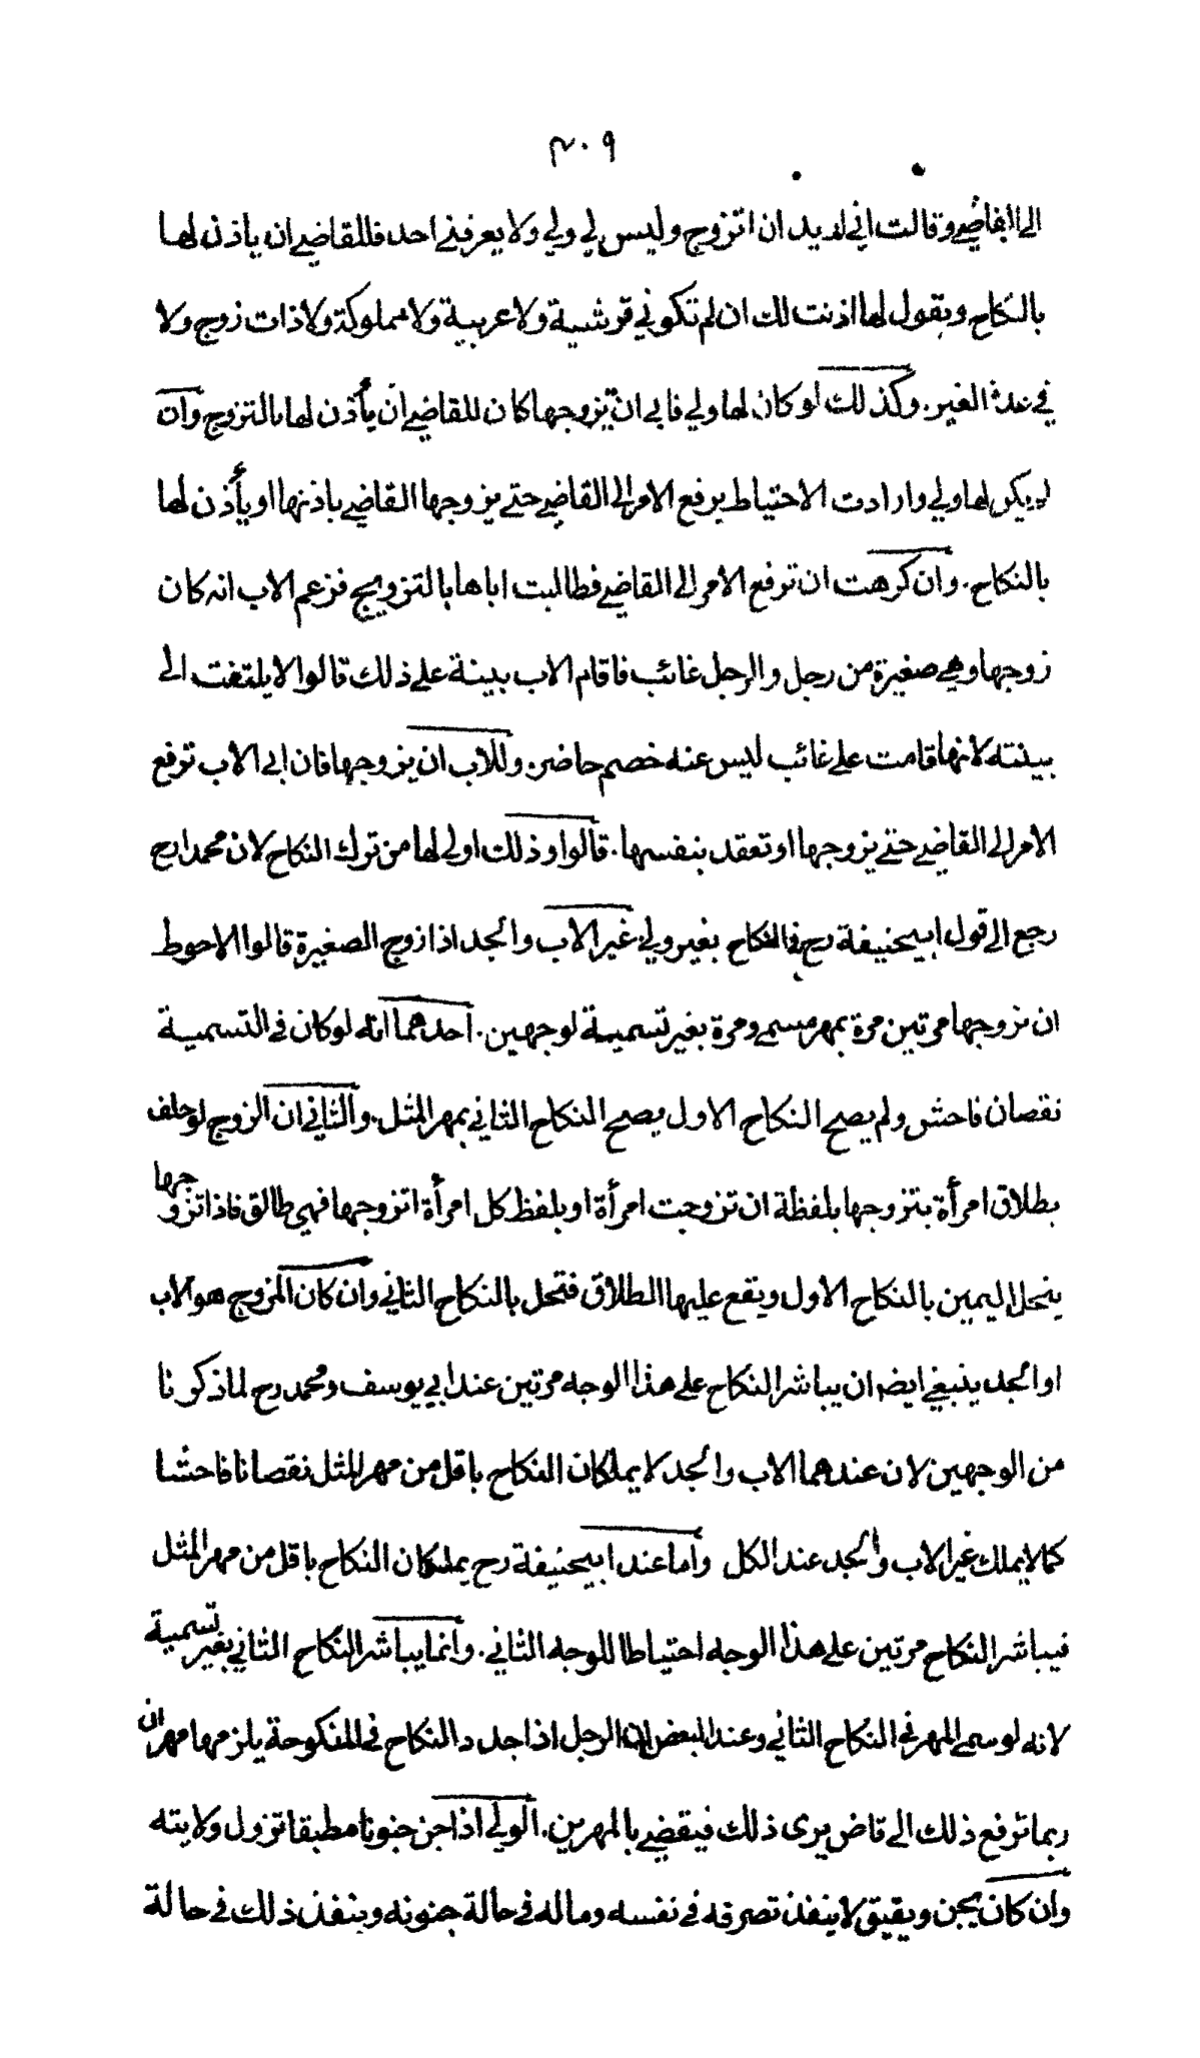 ٣٠٩
الى القاضي وقالت اني اريد ان اتزوج وليس لي ولي ولا يعرفني احد فللقاضي ان ياذن لها
بالنكاح ويقول لها اذنت لك ان لم تكوني قرشية ولا عربية ولا مملوكة ولا ذات زوج ولا
في عدة الغير. وكذلك لو كان لها ولي فابى ان يزوجها كان للقاضي ان يأذن لها بالتزوج وان
لم يكن لها ولي وارادت الاحتياط يرفع الامر الى القاضي حتى يزوجها القاضي باذنها او يأذن لها
بالنكاح. وان كرهت ان ترفع الامر الى القاضي فطالبت اباها بالتزويج فزعم الاب انه كان
زوجها وهي صغيرة من رجل والرجل غائب فاقام الاب بينة على ذلك قالوا لا يلتفت الى
بينته لانها قامت على غائب ليس عنه خصم حاضر. وللاب ان يزوجها فان ابى الاب ترفع
الامر الى القاضي حتى يزوجها او تعقد بنفسها. قالوا وذلك اولى لها من ترك النكاح لان محمدا رح
رجع الى قول ابيحنيفة رح في النكاح بغير ولي غير الاب والجد اذا زوج الصغيرة قالوا الاحوط
ان يزوجها مرتين مرة بمهر مسمى ومرة بغير تسمية لوجهين. احدهما انه لو كان في التسمية
نقصان فاحش ولم يصح النكاح الاول يصح النكاح الثاني بمهر المثل. والثاني ان الزوج لو حلف
بطلاق امرأة يتزوجها بلفظة ان تزوجت امرأة او بلفظ كل امرأة اتزوجها فهي طالق فاذا تزوجها
ينحل اليمين بالنكاح الاول ويقع عليها الطلاق فتحل بالنكاح الثاني وان كان المزوج هو الاب
او الجد ينبغي ايضه ان يباشر النكاح على هذا الوجه مرتين عند ابي يوسف ومحمد رح لما ذكرنا
من الوجهين لان عندهما الاب والجد لا يملكان النكاح باقل من مهر المثل نقصانا فاحشا
كما لا يملك غير الاب والجد عند الكل واما عند ابيحنيفة رح يملكان النكاح باقل من مهر المثل
فيباشر النكاح مرتين على هذا الوجه احتياطا للوجه الثاني. وانما يباشر النكاح الثاني بغير تسمية
لانه لو سمى المهر في النكاح الثاني وعند البعض ان الرجل اذا جدد النكاح في المنكوحة يلزمها مهران
ربما ترفع ذلك الى قاض يرى ذلك فيقضي بالمهرين. الولي اذا جن جنونا مطبقا تزول ولايته
وان كان يجن ويفيق لا ينفذ تصرفه في نفسه وماله في حالة جنونه وينفذ ذلك في حالة